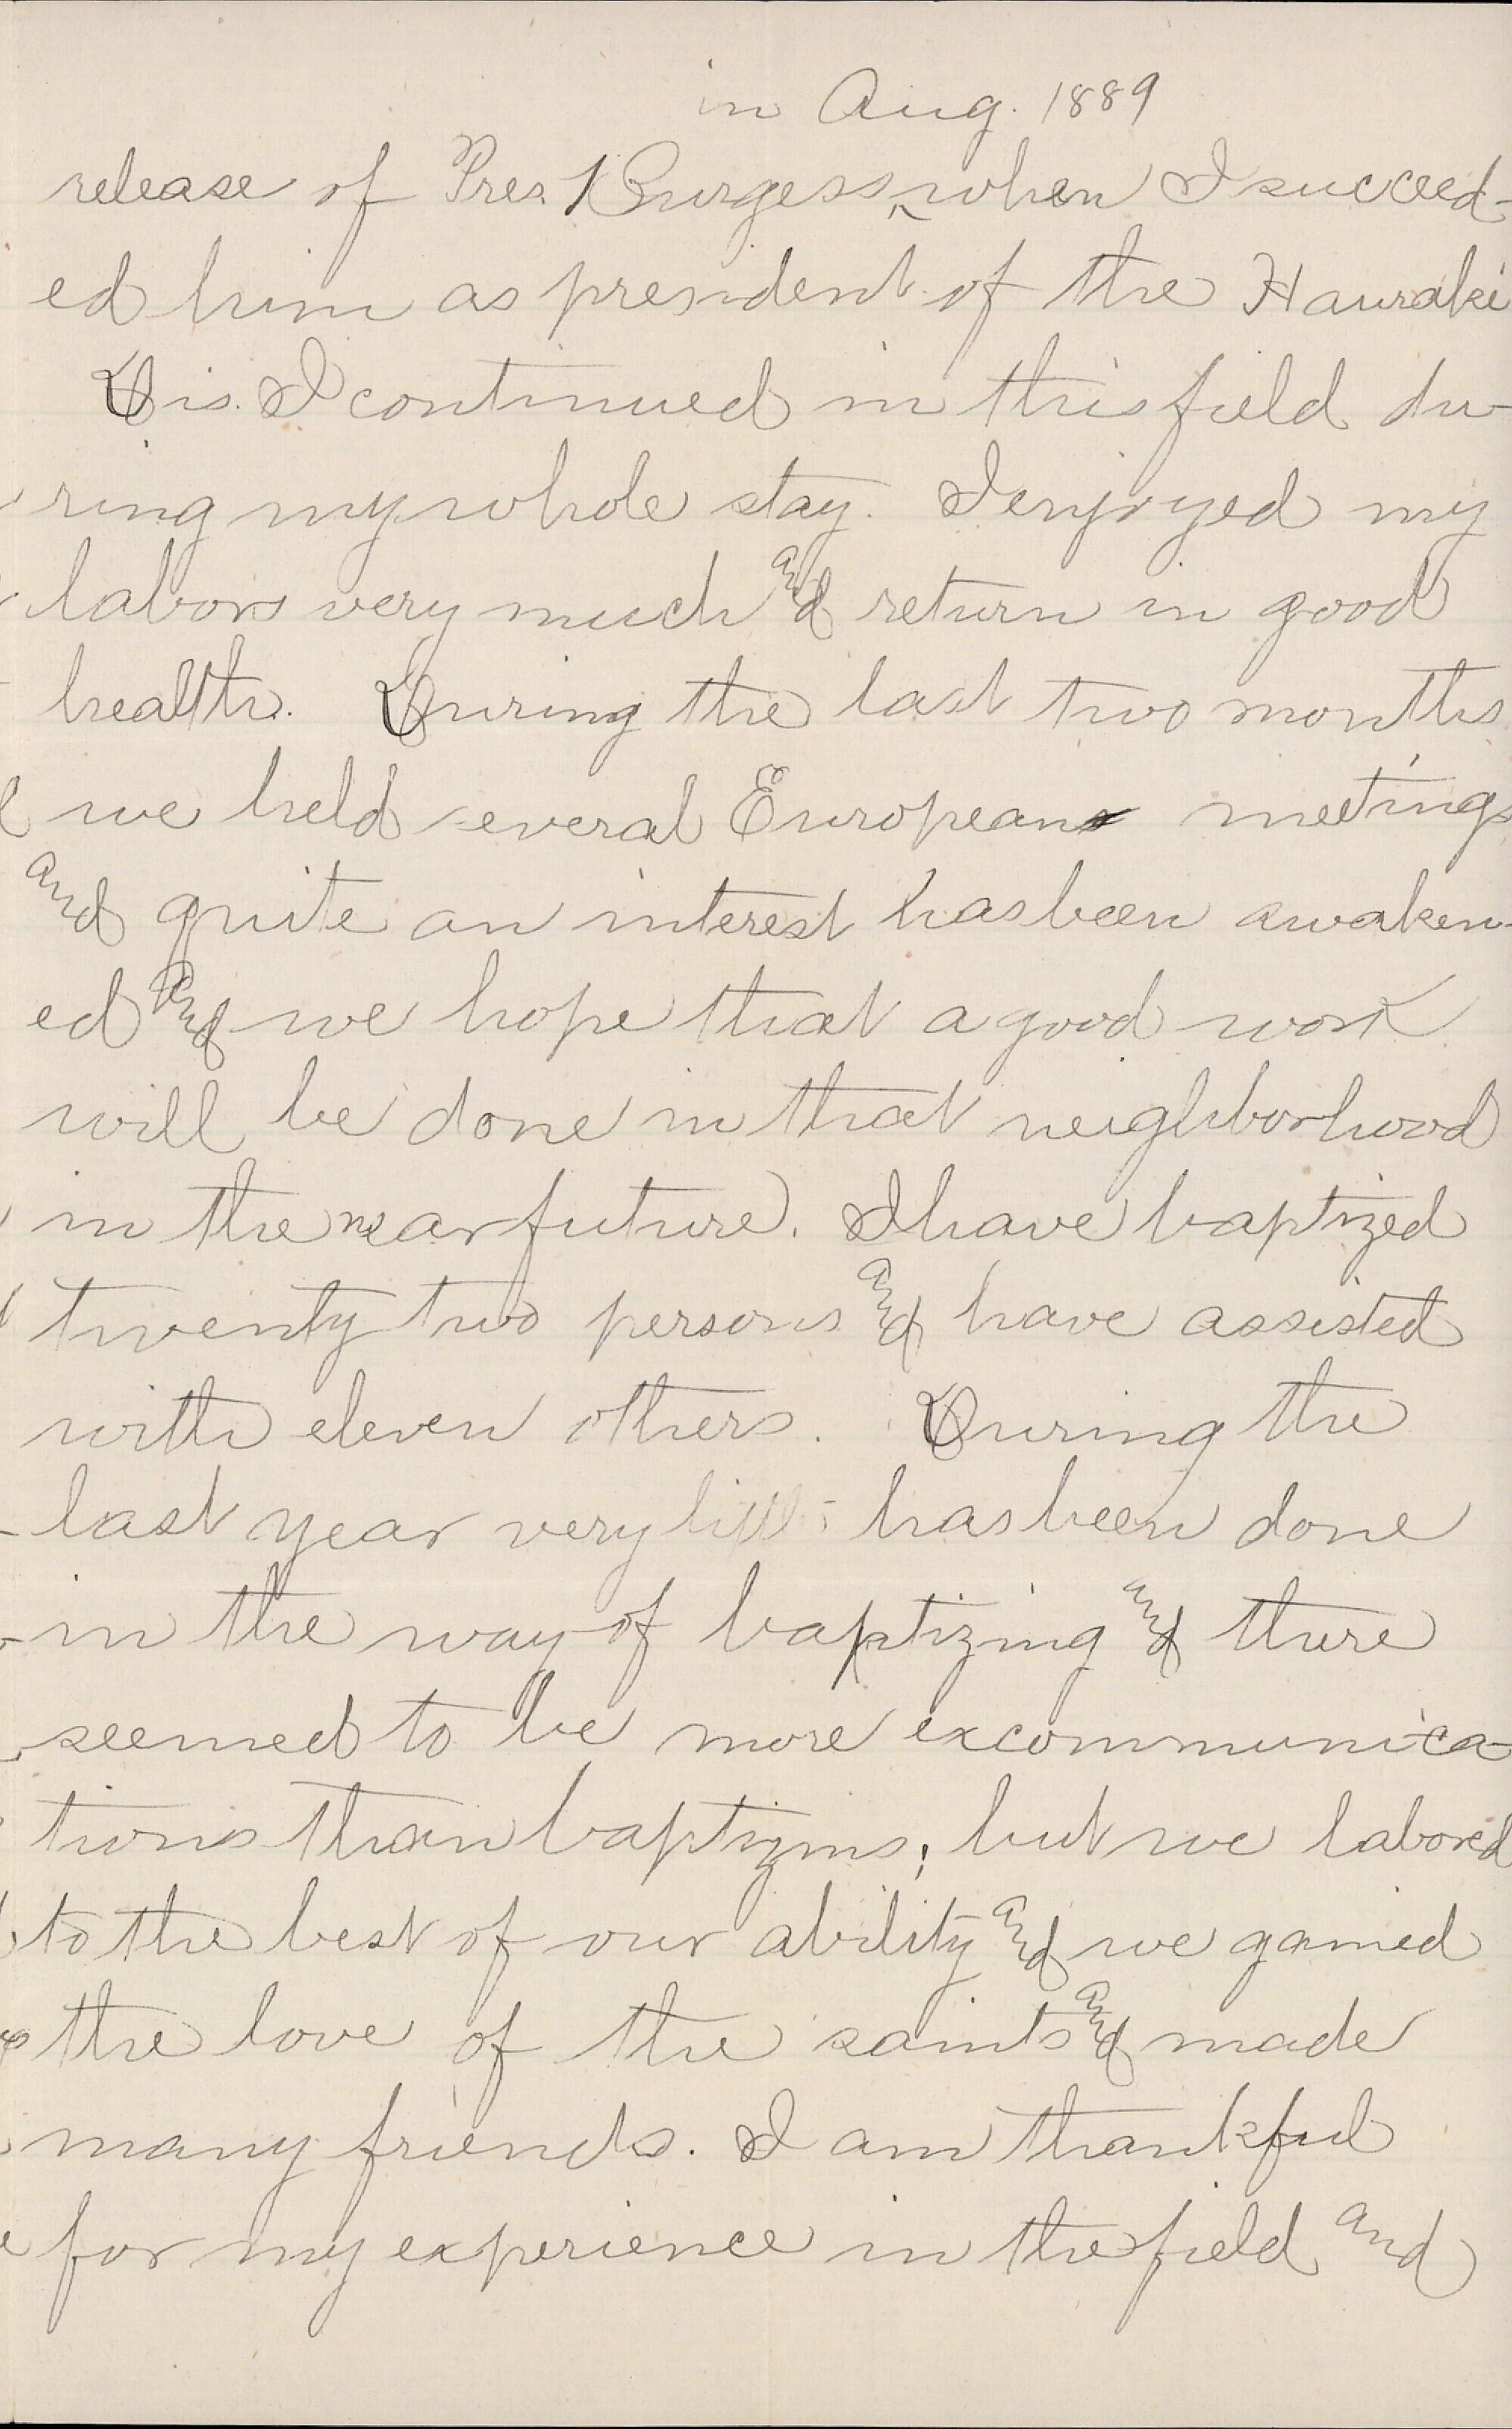 in Aug. 1889
release of Pres. Burgess ^ when I succeed-
ed him as president of the Hauraki
Dis. I continued in this field du-
ring my whole stay. I enjoyed my
labors very much and return in good
health. During the last two months
we held several European meetings
and quite an interest has been awaken-
ed and we hope that a good work
will be done in that neighborhood
in the near future. I have baptized
twenty two persons and have assisted
with eleven others. During the
last year very little has been done
in the way of baptizing and there
seemed to be more excommunica-
tions than baptizms; but we labored
to the best of our ability and we gained
the love of the saints and made
many friends. I am thankful
for my experience in the field and